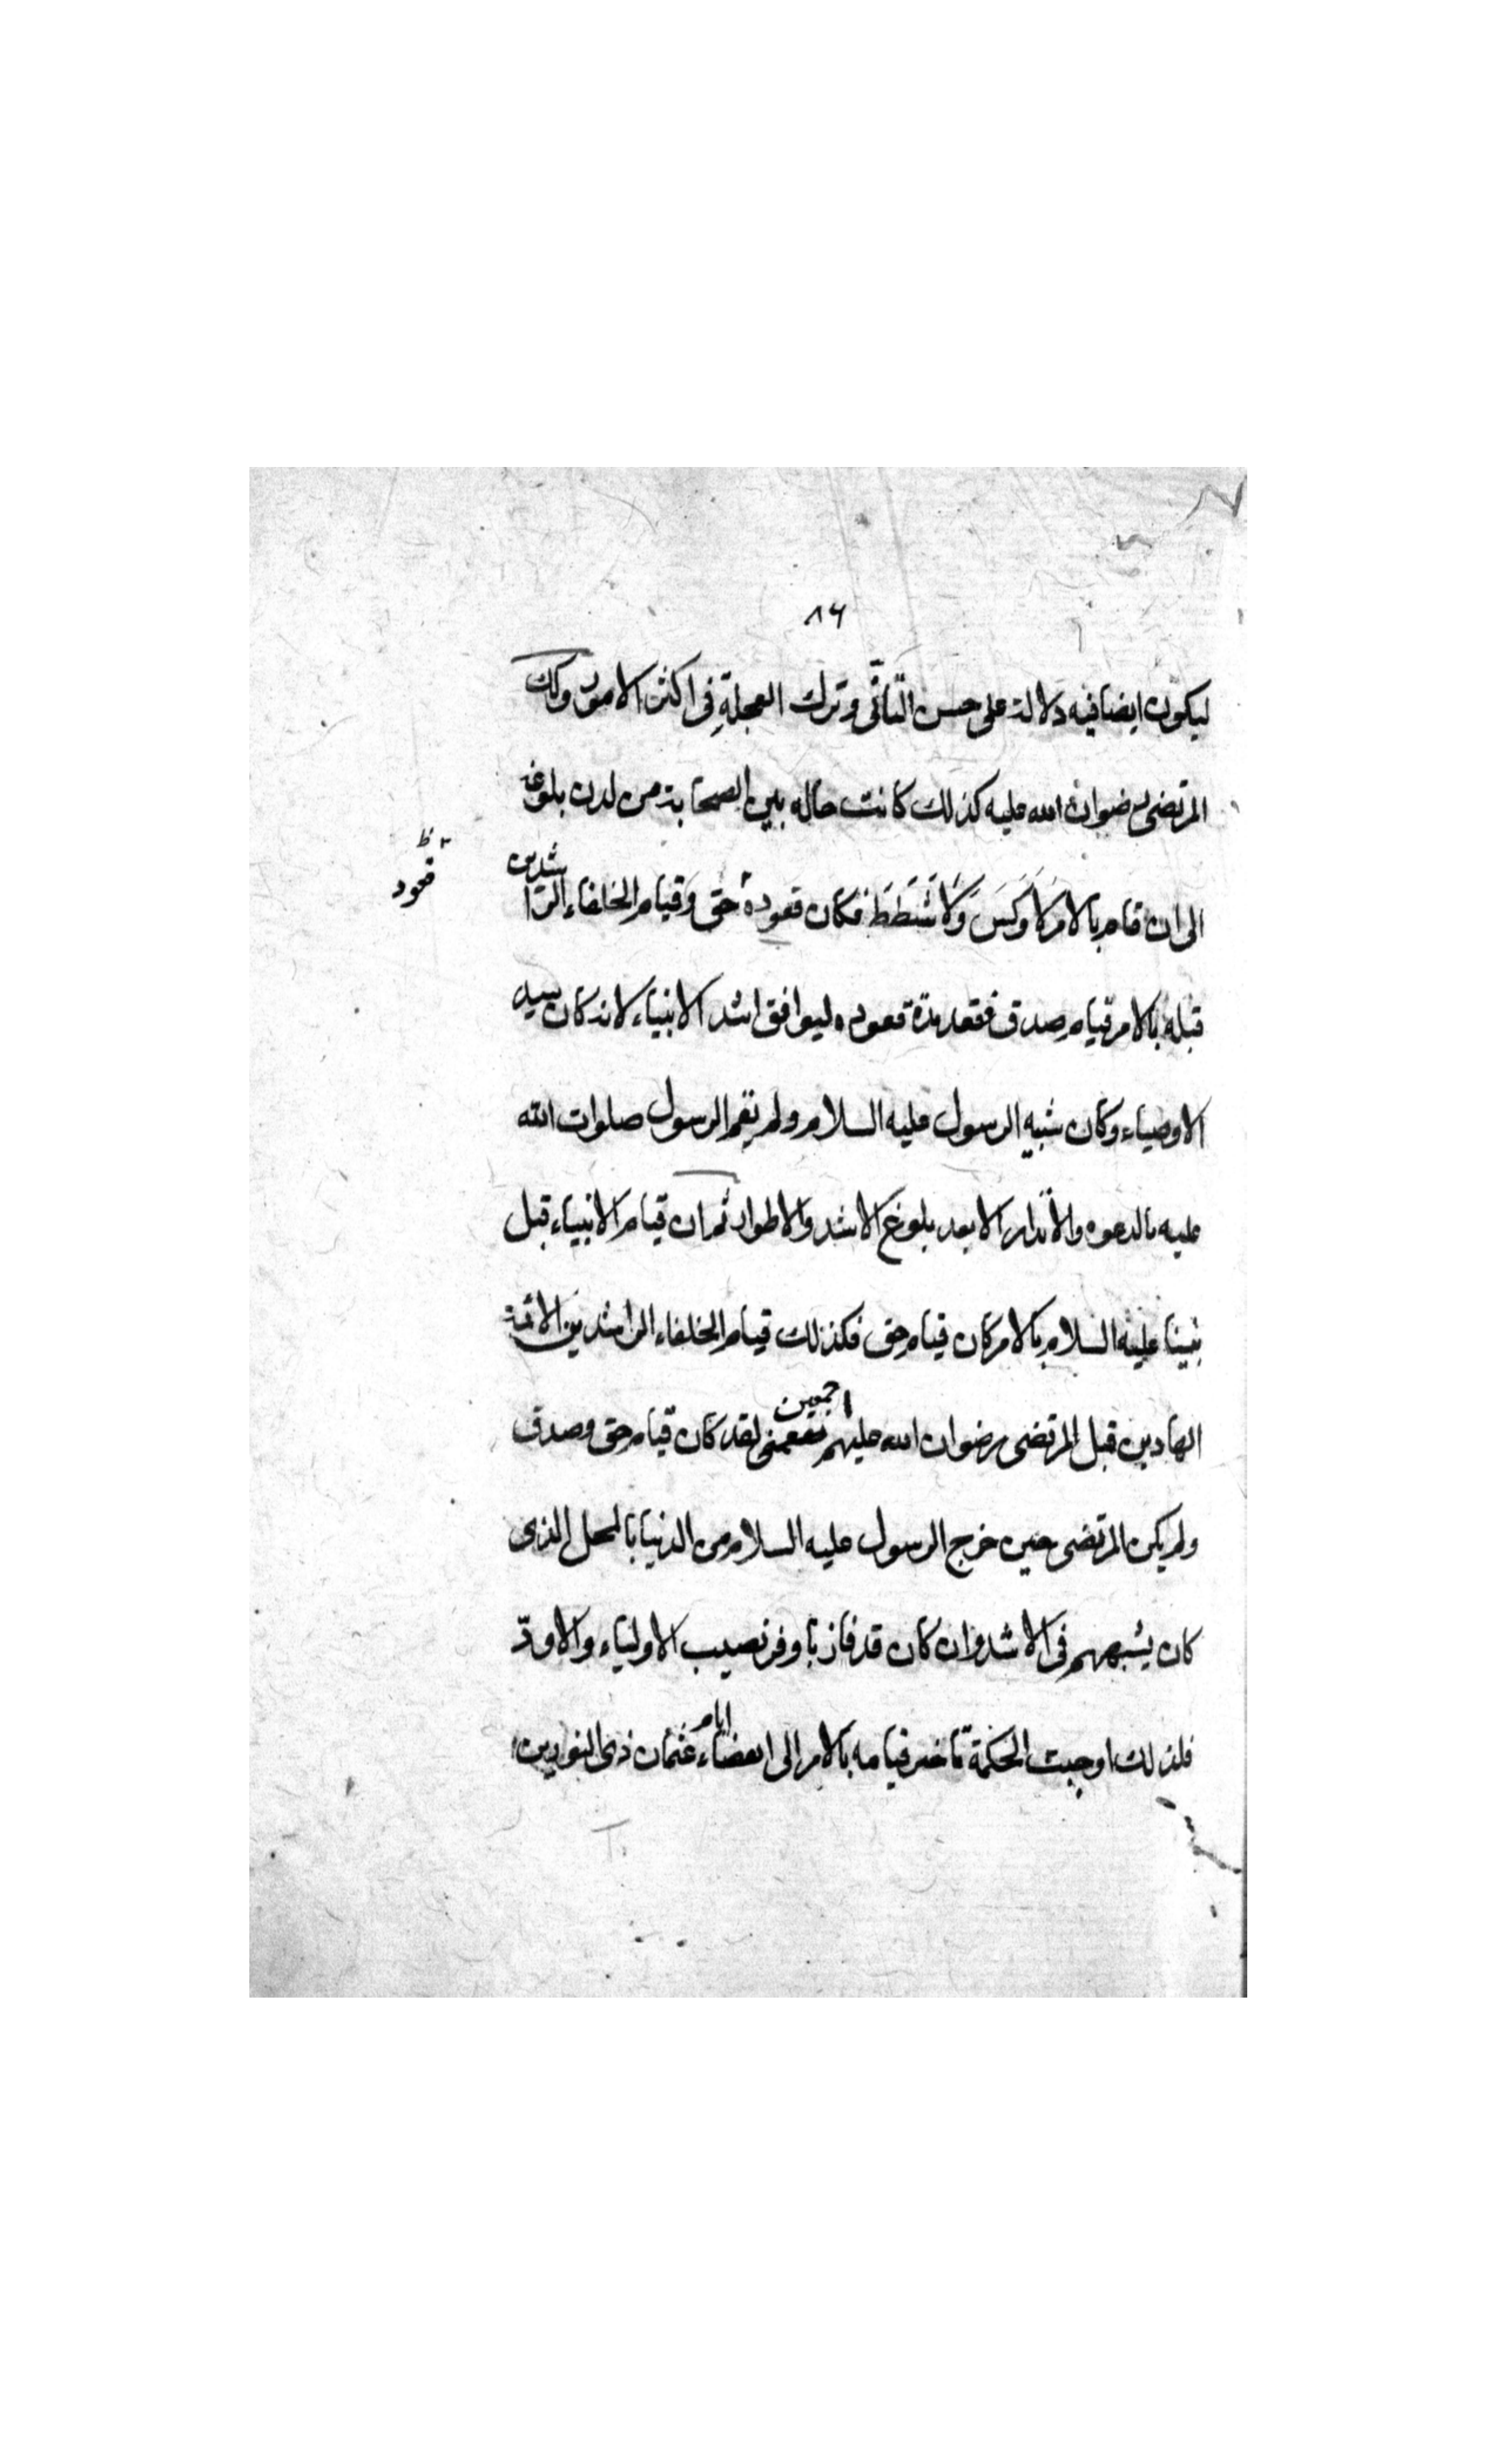 ٨٦
ليكون ايضا فيه دلالة على حسن التأنّى وترك العجلةِ فى اكثر الامور وكك
المرتضى رضوان الله عليه كذلك كانت حاله بين الصحابة من لدن بلوغه
ظ
قعود
الى ان قام بالامر لاَ وَكَسَ وَلاَ شَطَطَ فكان قعوده حق وقيام الخلفاء الراشدين
قبله بالامر قيام صدق فقعد مدة قعوده ليوافق اشد الانبياء لانه كان سيد
الاوصياء وكان شبيه الرسول عليه السلام ولم يقم الرسول صلوات الله
عليه بالدعوه والأنذار الا بعد بلوغ الاشد والاطوار ثم ان قيام الانبياء قبل
نبينا عليه السلام بالامر كان قيام حق فكذلك قيام الخلفاء الراشدين الائمة
الهادين قبل المرتضى رضوان الله عليهم اجمعين لقد كان قيام حق وصدق
ولم يكن المرتضى حين خرج الرسول عليه السلام من الدنيا بالمحل الذى
كان يشبههم فى الاشد وان كان قد فاز باوفر نصيب الاولياء والاودّ
فلذلك اوجبت الحكمة تاخير قيامه بالامر الى انقضاء ايام عثمان ذى النورين